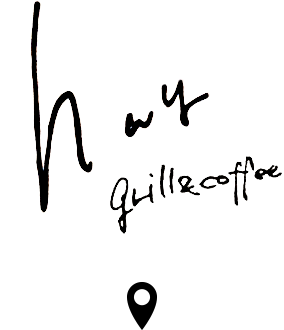 hay
grill&coffee